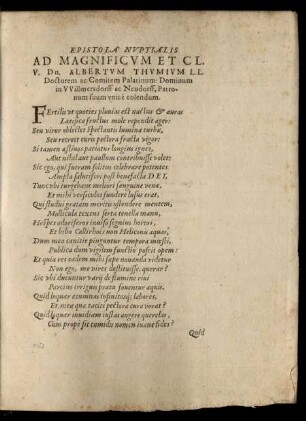 EPISTOLA NVPTIALIS
AD MAGNIFICVM ET CL.
V. Dn. ALBERTVM THVMIVM I.L.
Doctorem ac Comitem Palatinum: Dominum
in VVillmersdorff ac Neudorff, Patro-
num suum unicè colendum.
FErtilis ut quoties pluvias est nactus & auras
Lætificos fructus mole rependit ager:
Seu viror oblectet spectantis lumina turbæ,
Seu recreet eurn pectora fracta vigor:
Si tamen assiduus patiatur longius ignes,
Aut nihil aut paullum contribuisse volet:
Sic ego, qui fueram solitus celebrare potentes
Ampla salutiferi post benefacta DEI,
Tunc ubi turgebant meliori sanguine venæ,
Et mihi versiculos fundere lusus erat,
Qui studiis gratam meritis ostendere mentem,
Mollicula texens serta tenella manu,
Hesper adusserea invise signius hortos,
Et bibo Castirhoes non Heliconis aquas,
Dum mea canities pinguntur tempora
Publica dum vigilem functio poscit opem:
Et quia res eadem mihi sæpe novanda videtur
Non ego, me vires destituisse, querar?
Sic ubi ducuntur variis de flumine rivi
Parcius irriguus prata fovent aquis.
Quid loquar ærumnas infinitosque labores,
Et, mea quæ taciti pectora cura vorat?
Quid loquar invidiam iustas augere querelas,
Cum propè sit tumidis nomen inane fides?
Quid